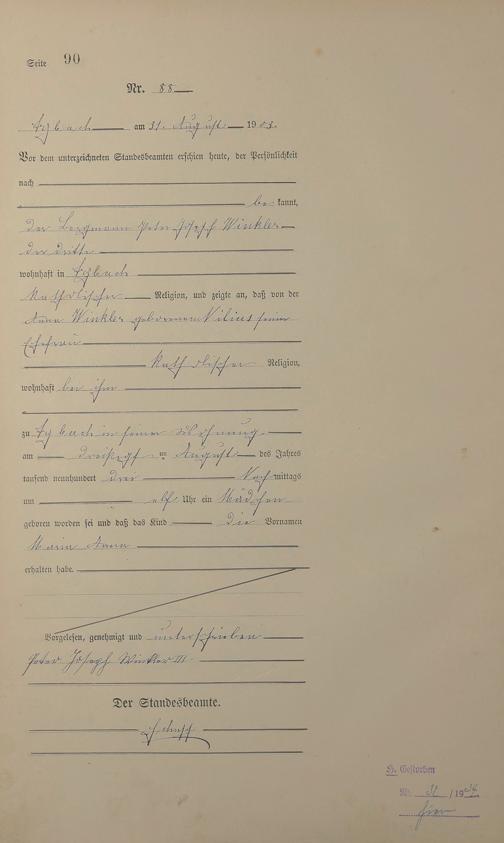 Seite 90
Nr. 88
am 31. August 1903.
Vor dem unterzeichneten Standesbeamten erschien heute, der Persönlichkeit
nach
be kannt,
der Bergmann Peter Joseph Winkler
der dritte
wohnhaft in
katholischer Religion, und zeigte an, daß von der
Anna Winkler geborenen Vilius seiner
Ehefrau
katholischer Religion,
wohnhaft bei ihm
zu in seiner Wohnung
am dreißigsten August des Jahres
tausend neunhundert drei Nach mittags
um elf Uhr ein Mädchen
geboren worden sei und daß das Kind die Vornamen
Maria Anna
erhalten habe.
Vorgelesen, genehmigt und unterschrieben
Peter Joseph Winkler III
Der Standesbeamte.
Gestorben
Nr. /19
hier